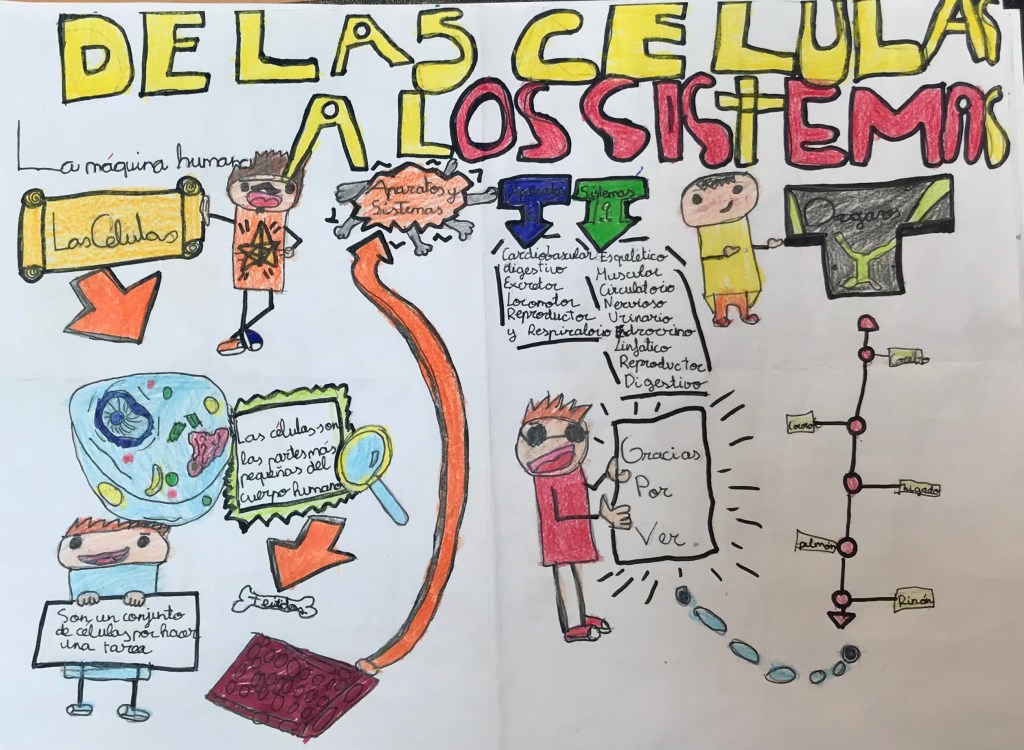 DE LAS CELULAS
A LOS SISTEMAS
La máquina humana
Las Células
Aparatos y
Sistemas
Aparatos
Sistemas
Organos
Cardiobasular
digestivo
Excretor
Locomotor
Reproductor
y Respiratorio
Esquelético
Muscular
Circulatorio
Nervioso
Urinario
Edrocrino
Linfatico
Reproductor
Digestivo
Las células son
las partes más
pequeñas del
cuerpo humano
Son un conjunto
de células por hacer
una tarea
Gracias
Por
Ver
higado
pulmón
Rinón